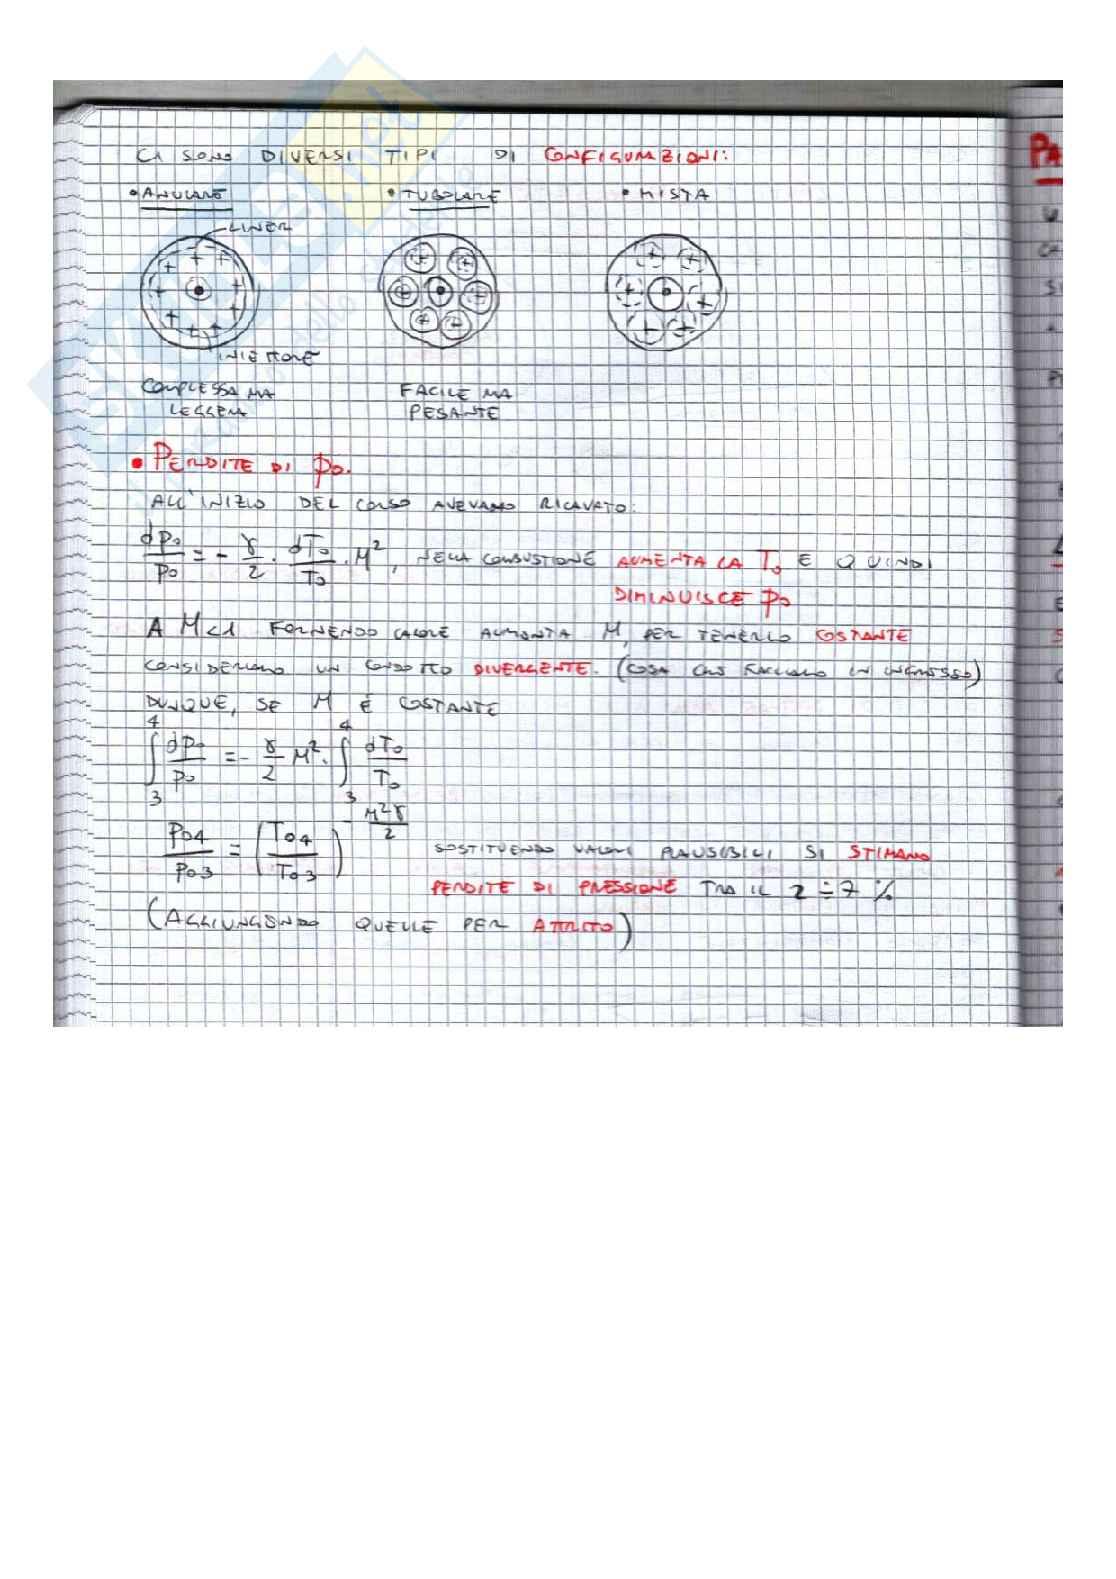 CI SONO DIVERSI TIPI DI CONFIGURAZIONI:
• ANULARE • TUBOLARE • MISTA
LINER
INIETTORE
COMPLESSA MA FACILE MA
LEGGERA PESANTE
• PERDITE DI p₀.
ALL'INIZIO DEL CORSO AVEVAMO RICAVATO:
dp₀/p₀ = - γ/2 · dT₀/T₀ · M², NELLA COMBUSTIONE AUMENTA LA T₀ E QUINDI
DIMINUISCE p₀
A M<1 FORNENDO CALORE AUMENTA M, PER TENERLO COSTANTE
CONSIDERIAMO UN CONDOTTO DIVERGENTE. (COSA CHE FACCIAMO IN INGRESSO)
DUNQUE, SE M È COSTANTE
∫₃⁴ dp₀/p₀ = - γ/2 M² · ∫₃⁴ dT₀/T₀
p₀₄/p₀₃ = (T₀₄/T₀₃)^(-M²γ/2) SOSTITUENDO VALORI PLAUSIBILI SI STIMANO
PERDITE DI PRESSIONE TRA IL 2÷7 %
(AGGIUNGENDO QUELLE PER ATTRITO)
PA